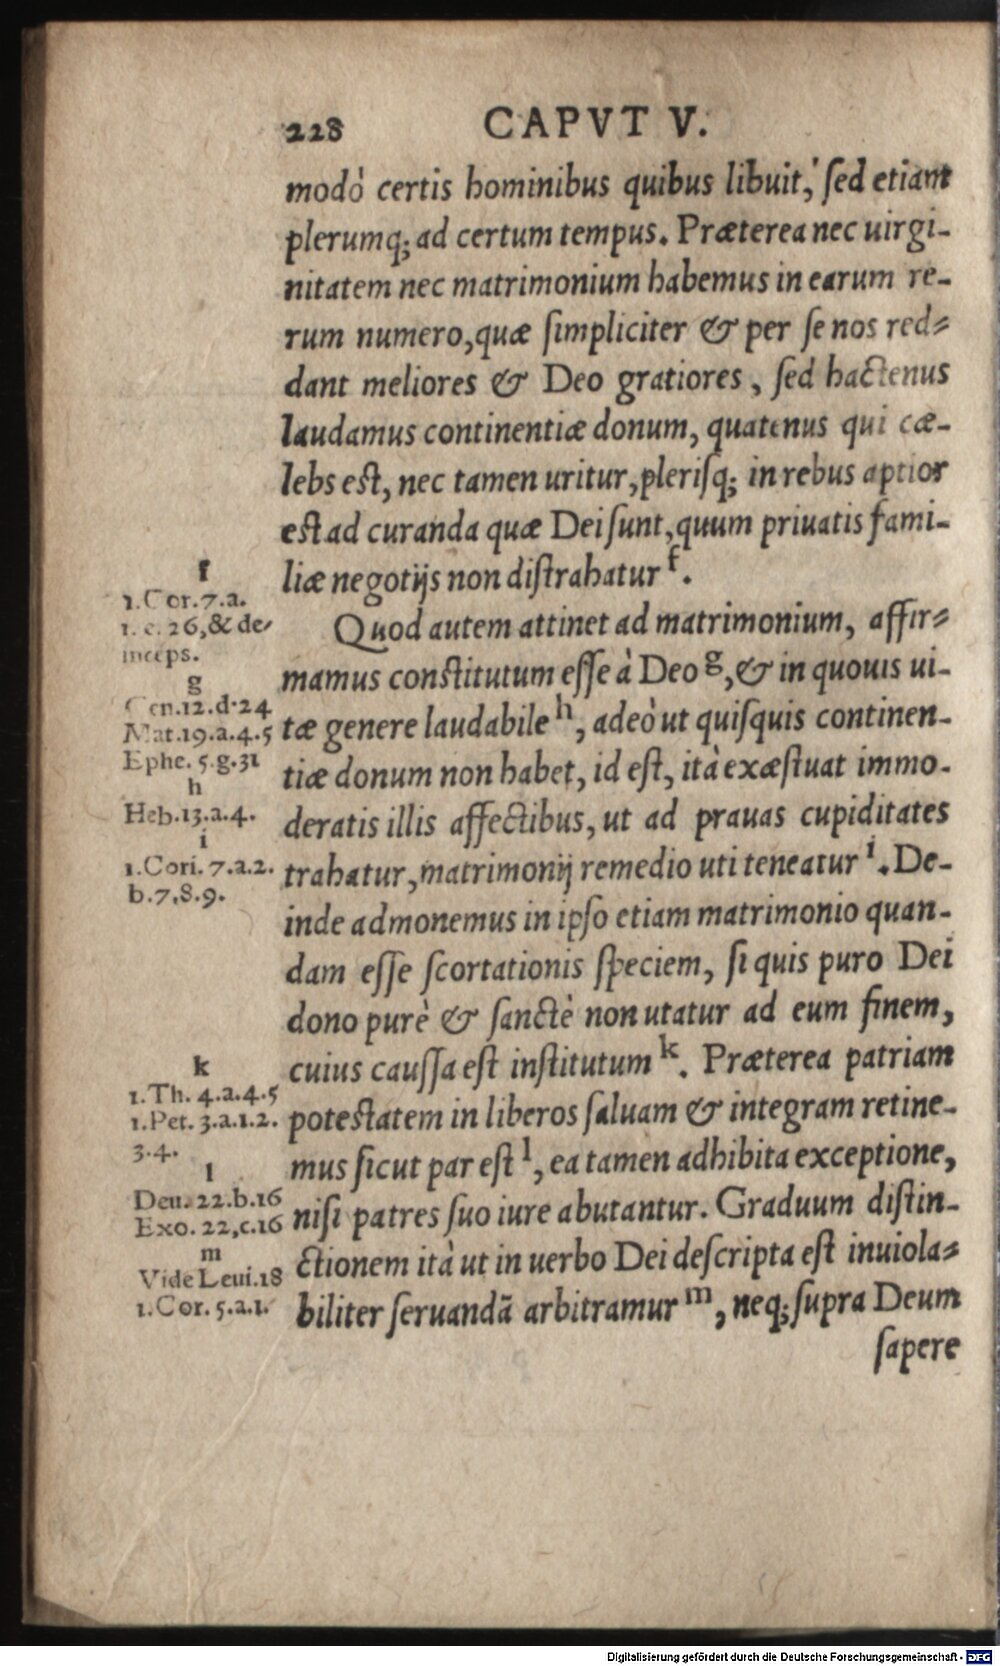 228 CAPVT V.
modò certis hominibus quibus libuit, ſed etiam
plerumq; ad certum tempus. Præterea nec uirgi-
nitatem nec matrimonium habemus in earum re-
rum numero, quæ ſimpliciter & per ſe nos red-
dant meliores & Deo gratiores, ſed hactenus
laudamus continentiæ donum, quatenus qui cæ-
lebs est, nec tamen uritur, pleriſq; in rebus aptior
est ad curanda quæ Dei ſunt, quum priuatis fami-
liæ negotijs non diſtrahatur f.
Quod autem attinet ad matrimonium, affir-
mamus constitutum eſſe à Deo g, & in quouis ui-
tæ genere laudabile h, adeò ut quiſquis continen-
tiæ donum non habet, id eſt, ità exæſtuat immo-
deratis illis affectibus, ut ad prauas cupiditates
trahatur, matrimonij remedio uti teneatur i. De-
inde admonemus in ipſo etiam matrimonio quan-
dam eſſe ſcortationis ſpeciem, ſi quis puro Dei
dono purè & ſanctè non utatur ad eum finem,
cuius cauſſa eſt inſtitutum k. Præterea patriam
poteſtatem in liberos ſaluam & integram retine-
mus ſicut par eſt l, ea tamen adhibita exceptione,
niſi patres ſuo iure abutantur. Graduum diſtin-
ctionem ità ut in uerbo Dei deſcripta eſt inuiola-
biliter ſeruandã arbitramur m, neq; ſupra Deum
ſapere
f
1.Cor.7.a.
1. c. 26, & de-
inceps.
g
Gen.12.d.24
Mat.19.a.4.5
Ephe. 5.g.31
h
Heb.13.a.4.
i
1.Cori. 7.a.2.
b.7.8.9.
k
1.Th. 4.a.4.5
1.Pet. 3.a.1.2.
3.4.
l
Deu. 22.b.16
Exo. 22,c.16
m
Vide Leui.18
1.Cor. 5.a.1.
Digitalisierung gefördert durch die Deutsche Forschungsgemeinschaft - DFG